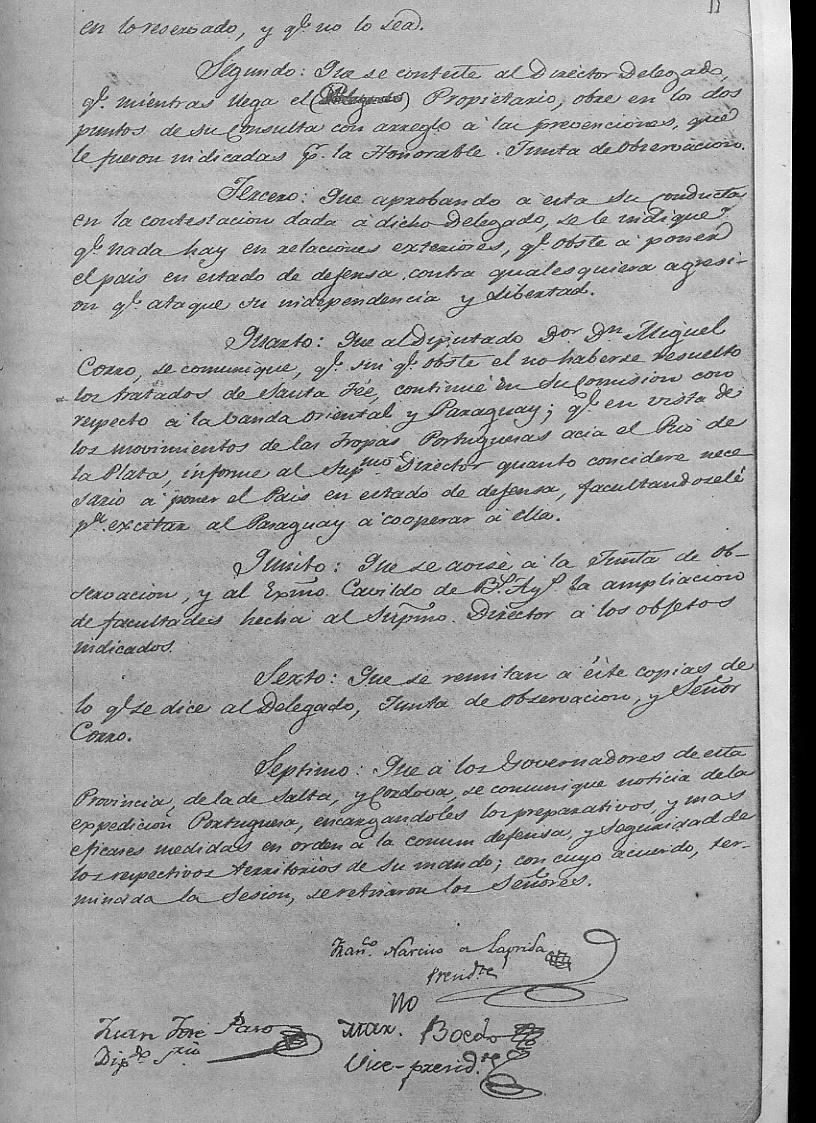 11
en lo reservado, y q.e no lo sea.
Segundo: Que se conteste al Director Delegado,
q.e mientras llega el Propietario, obre en los dos
puntos de su Consulta con arreglo à las prevenciones, que
le fueron indicadas p.r la Honorable Junta de Observacion.
Tercero: Que aprobando à esta su Conducta
en la contestacion dada à dicho Delegado, se le indique
q.e nada hay en relaciones exteriores, q.e obste à poner
el pais en estado de defensa contra qualesquiera agresi-
on q.e ataque su independencia y Libertad.
Quarto: Que al Diputado D.or D.n Miguel
Corro, se comunique, q.e sin q.e obste el no haberse resuelto
los tratados de Santa Fée, continue en su comision con
respecto à la banda Oriental y Paraguay; q.e en vista de
los movimientos de las Tropas Portuguesas acia el Rio de
la Plata, informe al Sup.mo Director quanto concidere nece
sario à poner el Pais en estado de defensa, facultandosele
p.a excitar al Paraguay à cooperar à ella.
Quinto: Que se avise à la Junta de Ob-
servacion, y al Exmo. Cavildo de B.s Ay.s la ampliacion
de facultades hecha al Supmo. Director à los objetos
indicados.
Sexto: Que se remitan à éste copias de
lo q.e se dice al Delegado, Junta de Observacion, y Señor
Corro.
Septimo: Que à los Governadores de esta
Provincia, de la de Salta, y Cordova, se comunique noticia de la
expedicion Portuguesa, encargandoles los preparativos, y mas
eficaces medidas en orden à la comun defensa, y Seguridad de
los respectivos territorios de su mando; con cuyo acuerdo, ter-
minada la Sesion, se retiraron los Señores.
Fran.co Narciso de Laprida
Presid.te
Mar. Boedo
Vice-presid.te
Juan José Paso
Dip.do S.rio